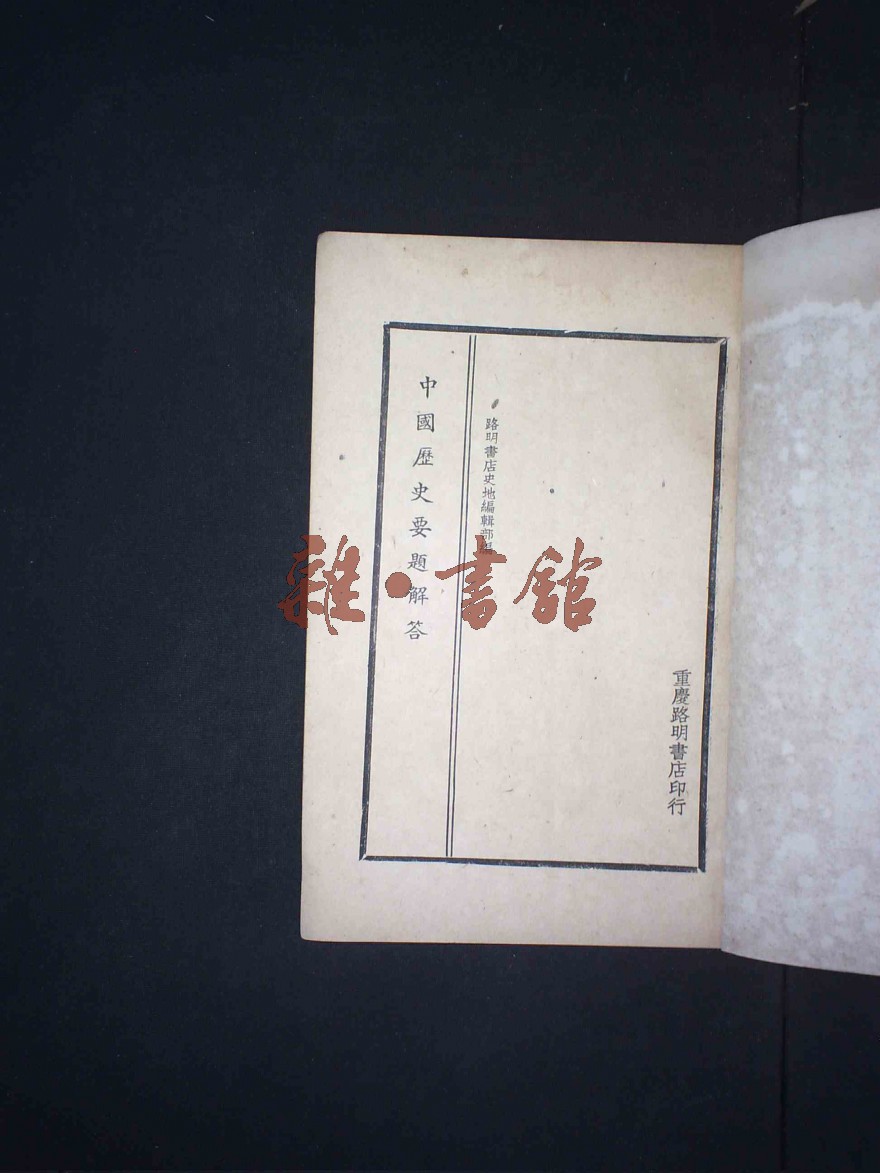 中國歷史要題解答
路明書店史地編輯部編
重慶路明書店印行
雜·書館